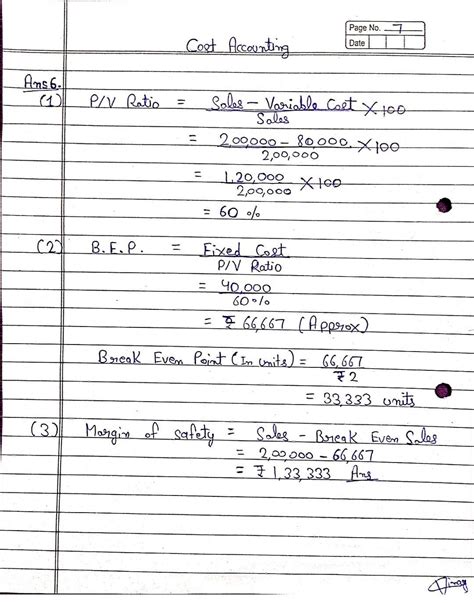 Page No. 7
Date
Cost Accounting
Ans 6.
(1) P/V Ratio = Sales - Variable Cost × 100
Sales
= 2,00,000 - 80,000 × 100
2,00,000
= 1,20,000 × 100
2,00,000
= 60 %
(2) B.E.P. = Fixed Cost
P/V Ratio
= 40,000
60%
= ₹ 66,667 (Approx)
Break Even Point (In units) = 66,667
₹ 2
= 33,333 units
(3) Margin of safety = Sales - Break Even Sales
= 2,00,000 - 66,667
= ₹ 1,33,333 Ans